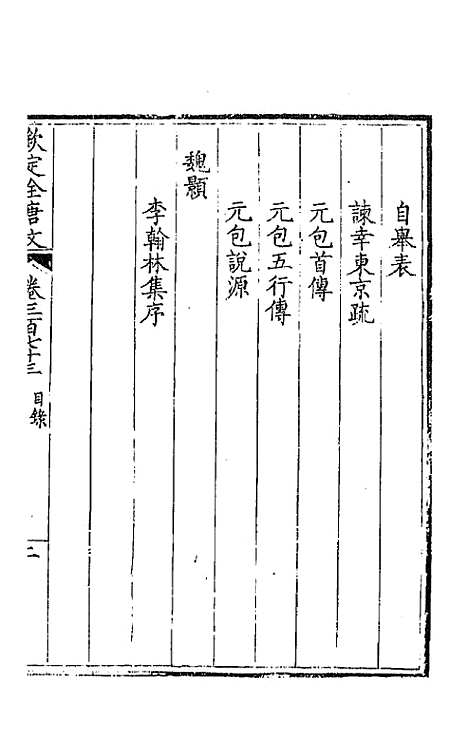 自舉表
諫幸東京疏
元包首傳
元包五行傳
元包說源
魏顥
李翰林集序
欽定全唐文
卷三百七十三
目錄
二